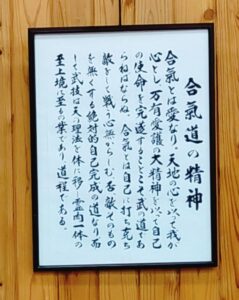 合氣道の精神
合氣とは愛なり。天地の心を以って我が
心とし、万有愛護の大精神を以って自己
の使命を完遂することこそ武の道であ
らねばならぬ。合氣とは自己に打ち克ち
敵をして戦う心無からしむ、否、敵そのもの
を無くする絶対的自己完成の道なり、而
して武技は天の理法を体に移し霊肉一体の
至上境に至るの業であり道程である。